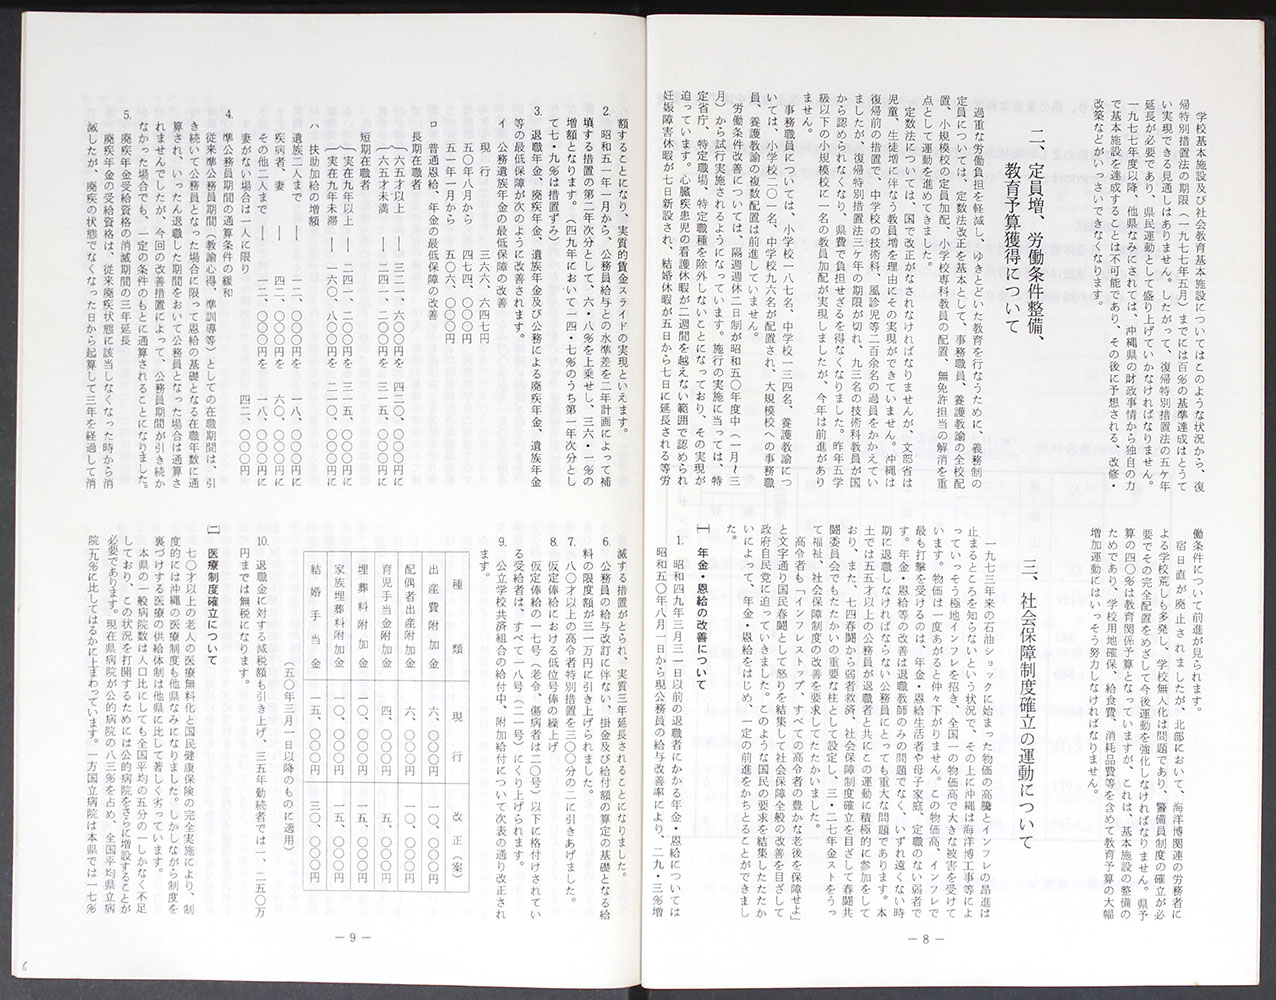 学校基本施設及び社会教育基本施設についてはこのような状況から、復
帰特別措置法の期限(一九七七年五月)までには百%の基準達成はとうて
い実現できる見通しはありません。したがって、復帰特別措置法の五ケ年
延長が必要であり、県民運動として盛り上げていかなければなりません。
一九七七年度以降、他県なみにされては、沖縄県の財政事情から独自の力
で基本施設を達成することは不可能であり、その後に予想される、改修・
改築などがいっさいできなくなります。
二、定員増、労働条件整備、
教育予算獲得について
過重な労働負担を軽減し、ゆきとどいた教育を行なうために、義務制の
定員については、定数法改正を基本として、事務職員、養護教諭の全校配
置、小規模校の定員加配、小学校専科教員の配置、無免許担当の解消を重
点として運動を進めてきました。
定数法については、国で改正がなされなければなりませんが、文部省は
児童、生徒増に伴なう教員増を理由にその実現ができていません。沖縄は
復帰前の措置で、中学校の技術科、風診児等二百余名の過員をかかえてい
ましたが、復帰特別措置法三ケ年の期限が切れ、九三名の技術科教員が国
から認められなくなり、県費で負担せざるを得なくなりました。昨年五学
級以下の小規模校に一名の教員加配が実現しましたが、今年は前進があり
ません。
事務職員については、小学校一八七名、中学校一三四名、養護教諭につ
いては、小学校二〇一名、中学校九六名が配置され、大規模校への事務職
員、養護教諭の複数配置は前進していません。
労働条件改善については、隔週週休二日制が昭和五〇年度中(一月〜三
月)から試行実施されるようになっています。施行の実施に当っては、特
定省庁、特定職場、特定職種を除外しないことになっており、その実現が
迫っています。心臓疾患児の看護休暇が二週間を越えない範囲で認められ
妊娠障害休暇が七日新設され、結婚休暇が五日から七日に延長される等労
働条件について前進が見られます。
宿日直が廃止されましたが、北部において、海洋博関連の労務者に
よる学校荒しも多発し、学校無人化は問題であり、警備員制度の確立が必
要でその完全配置をめざして今後運動を強化しなければなりません。県予
算の四〇%は教育関係予算となっていますが、これは、基本施設の整備の
ためであり、学校用地確保、給食費、消耗品費等を含めて教育予算の大幅
増加運動にはいっそう努力しなければなりません。
三、社会保障制度確立の運動について
一九七三年来の石油ショックに始まった物価の高騰とインフレの昂進は
止まるところを知らないという状況で、その上に沖縄は海洋博工事等によ
っていっそう極地インフレを招き、全国一の物価高で大きな被害を受けて
います。物価は一度あがると仲々下がりません。この物価高、インフレで
最も打撃を受けるのは、年金・恩給生活者や母子家庭、定職のない弱者で
す。年金・恩給等の改善は退職教師のみの問題でなく、いずれ遠くない時
期に退職しなければならない公務員にとっても重大な問題であります。本
土では五五才以上の公務員が退職者と共にこの運動に積極的に参加をして
おり、また、七四春闘から弱者救済、社会保障制度確立を目ざして春闘共
闘委員会でもたたかいの重要な柱として設定し、三・二七年金ストをうっ
て福祉、社会保障制度の改善を要求してたたかいました。
高令者も「インフレストップ、すべての高令者の豊かな老後を保障せよ」
と文字通り国民春闘として怒りを結集して社会保障全般の改善を目ざして
政府自民党に迫っていきました。このような国民の要求を結集したたたか
いによって、年金・恩給をはじめ、一定の前進をかちとることができまし
た。
㈠ 年金・恩給の改善について
1. 昭和四九年三月三一日以前の退職者にかかる年金・恩給については
昭和五〇年八月一日から現公務員の給与改善率により、二九・三%増
— 8 —
額することになり、実質的賃金スライドの実現といえます。
2. 昭和五一年一月から、公務員給与との水準差を二年計画によって補
填する措置の第二年次分として、六・八%を上乗せし、三六・一%の
増額となります。(四九年において一四・七%のうち第一年次分とし
て七・九%は措置ずみ)
3. 退職年金、廃疾年金、遺族年金及び公務による廃疾年金、遺族年金
等の最低保障が次のように改善されます。
イ 公務遺族年金の最低保障の改善
現 行 三六六、六四七円
五〇年八月から 四七四、〇〇〇円
五一年一月から 五〇六、〇〇〇円
ロ 普通恩給、年金の最低保障の改善
長期在職者
六五才以上 ―― 三二一、六〇〇円を 四二〇、〇〇〇円に
六五才未満 ―― 二四一、二〇〇円を 三一五、〇〇〇円に
短期在職者
実在九年以上 ―― 二四一、二〇〇円を 三一五、〇〇〇円に
実在九年未滞 ―― 一六〇、八〇〇円を 二一〇、〇〇〇円に
ハ 扶助加給の増額
遺族二人まで ―― 一二、〇〇〇円を 一八、〇〇〇円に
疾病者、妻 ―― 四二、〇〇〇円を 六〇、〇〇〇円に
その他二人まで ―― 一二、〇〇〇円を 一八、〇〇〇円に
妻がない場合は一人に限り 四二、〇〇〇円に
4. 準公務員期間の通算条件の緩和
従来準公務員期間(教諭心得、準訓導等)としての在職期間は、引
き続いて公務員となった場合に限って恩給の基礎となる在職年数に通
算され、いったん退職した期間をおいて公務員となった場合は通算さ
れませんでしたが、今回の改善措置によって、公務員期間が引き続か
なかった場合でも、一定の条件のもとに通算されることになりました。
5. 廃疾年金受給資格の消滅期間の三年延長
廃疾年金の受給資格は、従来廃疾状態に該当しなくなった時から消
滅したが、廃疾の状態でなくなった日から起算して三年を経過して消
滅する措置がとられ、実質三年延長されることになりました。
6. 公務員の給与改訂に伴ない、掛金及び給付額の算定の基礎となる給
料の限度額が三一万円に引き上げられました。
7. 八〇才以上の高令者特別措置を三〇〇分の二に引きあげました。
8. 仮定俸給における低位号俸の繰上げ
仮定俸給の一七号(老令、傷病者は二〇号)以下に格付けされてい
る受給者は、すべて一八号(二一号)にくり上げられます。
9. 公立学校共済組合の給付中、附加給付について次表の通り改正され
ます。
種 類 現 行 改 正(案)
出産費附加金 六、〇〇〇円 一〇、〇〇〇円
配偶者出産附加金 六、〇〇〇円 一〇、〇〇〇円
育児手当金附加金 四、〇〇〇円 五、〇〇〇円
埋葬料附加金 一〇、〇〇〇円 一五、〇〇〇円
家族埋葬料附加金 一〇、〇〇〇円 一五、〇〇〇円
結婚手当金 一五、〇〇〇円 三〇、〇〇〇円
(五〇年三月一日以降のものに適用)
10. 退職金に対する減税額も引き上げ、三五年勤続者では一、二五〇万
円までは無税になります。
㈡ 医療制度確立について
七〇才以上の老人の医療無料化と国民健康保険の完全実施により、制
度的には沖縄の医療制度も他県なみになりました。しかしながら制度を
裏づけする医療の供給体制は他県に比して著しく劣っています。
本県の一般病院数は人口比にしても全国平均の五分の一しかなく不足
しており、この状況を打開するためには公的病院をさらに増設することが
必要であります。現在県病院が公的病院の八三%を占め、全国平均県立病
院九%に比してはるかに上まわっています。一方国立病院は本県では一七%
— 9 —
6